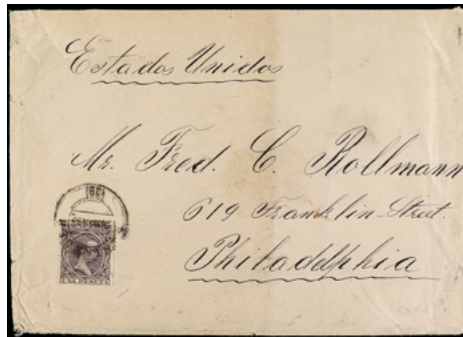 Estados Unidos
Mr. Fred. C. Rollmann
619 Franklin Street.
Philadelphia
UNA PESETA